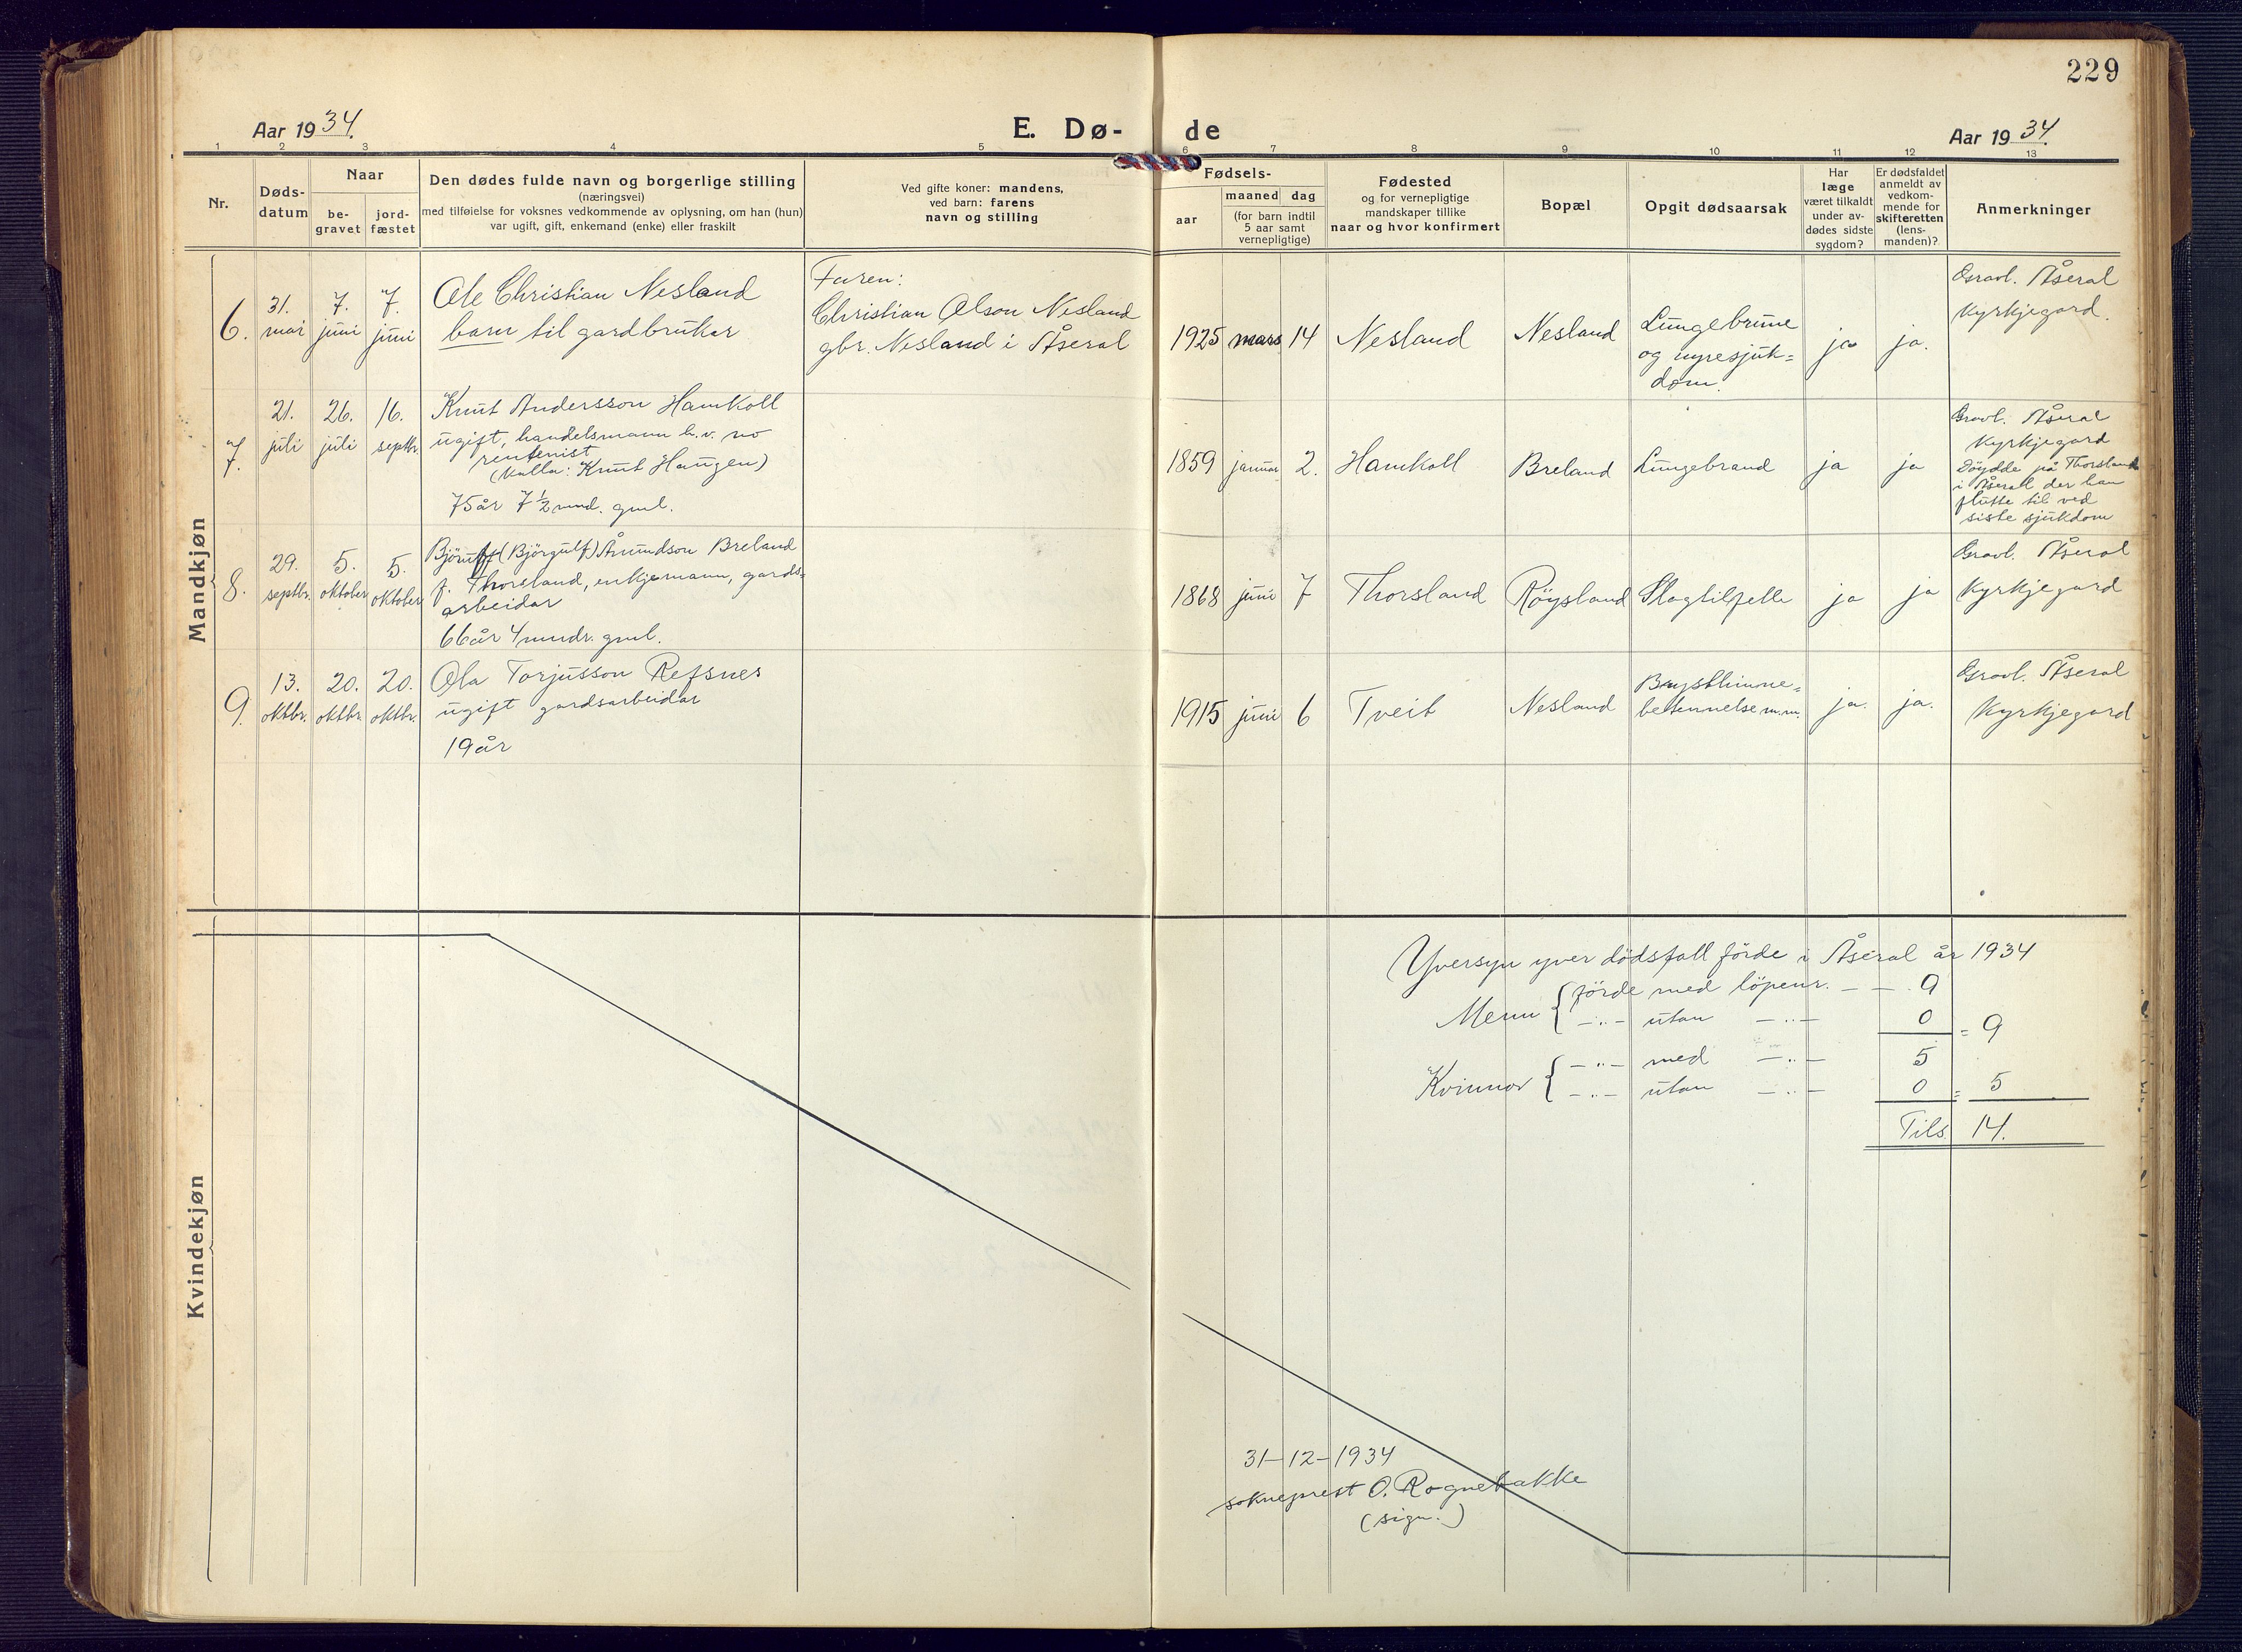 229
Aar 1934.
E. Dø-de
Aar 1934.
1 2 3 4 5 6 7 8 9 10 11 12 13
Nr.
Døds-
datum
Naar
be-
gravet
jord-
fæstet
Den dødes fulde navn og borgerlige stilling
(næringsvei)
med tilføielse for voksnes vedkommende av oplysning, om han (hun)
var ugift, gift, enkemand (enke) eller fraskilt
Ved gifte koner: mandens,
ved barn: farens
navn og stilling
Fødsels-
aar
maaned dag
(for barn indtil
5 aar samt
vernepligtige)
Fødested
og for vernepligtige
mandskaper tillike
naar og hvor konfirmert
Bopæl
Opgit dødsaarsak
Har
læge
været tilkaldt
under av-
dødes sidste
sygdom?
Er dødsfaldet
anmeldt av
vedkom-
mende for
skifteretten
(lens-
manden)?
Anmerkninger
Mandkjøn
6.
31.
mai
7.
juni
7.
juni
Ole Christian Nesland
barn til gardbrukar
Faren:
Christian Olson Nesland
gbr. Nesland i Åseral
1925 mars 14
Nesland
Nesland
Lungebrune
og nyresjuk=
dom.
ja
ja.
Gravl. Åseral
Kyrkjegard.
7.
21.
juli
26.
juli
16.
septbr.
Knut Andersson Hamkoll
ugift, handelsmann h.v. no
rentenist
(kalla: Knut Haugen)
75 år 7 ½ mnd. gml.
1859 januar 2.
Hamkoll
Breland
Lungebrand
ja
ja
Gravl. Åseral
Kyrkjegard
Döydde på Thorsland
i Åseral der han
flutte til ved
siste sjukdom
8.
29.
septbr.
5.
oktober
5.
oktober
(Björgulf) Ånundson Breland
f. Thorsland, enkjemann, gards=
arbeidar
66 år 4 mndr. gml.
1868 juni 7
Thorsland
Röysland
Slagtilfelle
ja
ja
Gravl. Åseral
Kyrkjegard
9.
13.
oktbr.
20.
oktbr.
20.
oktbr.
Ola Torjusson Refsnes
ugift gardsarbeidar
19 år
1915 juni 6
Tveit
Nesland
Brysthinne=
betennelse m.m.
ja.
ja.
Gravl. Åseral
Kyrkjegard
Kvindekjøn
Yversyn yver dödsfall förde i Åseral år 1934
Menn { förde med löpenr. — — 9
—"— utan —"— 0 = 9
Kvinnor { —"— med —"— 5
—"— utan —"— 0 = 5
Tils 14.
31-12-1934
sokneprest O. Rognebakke
(sign.)